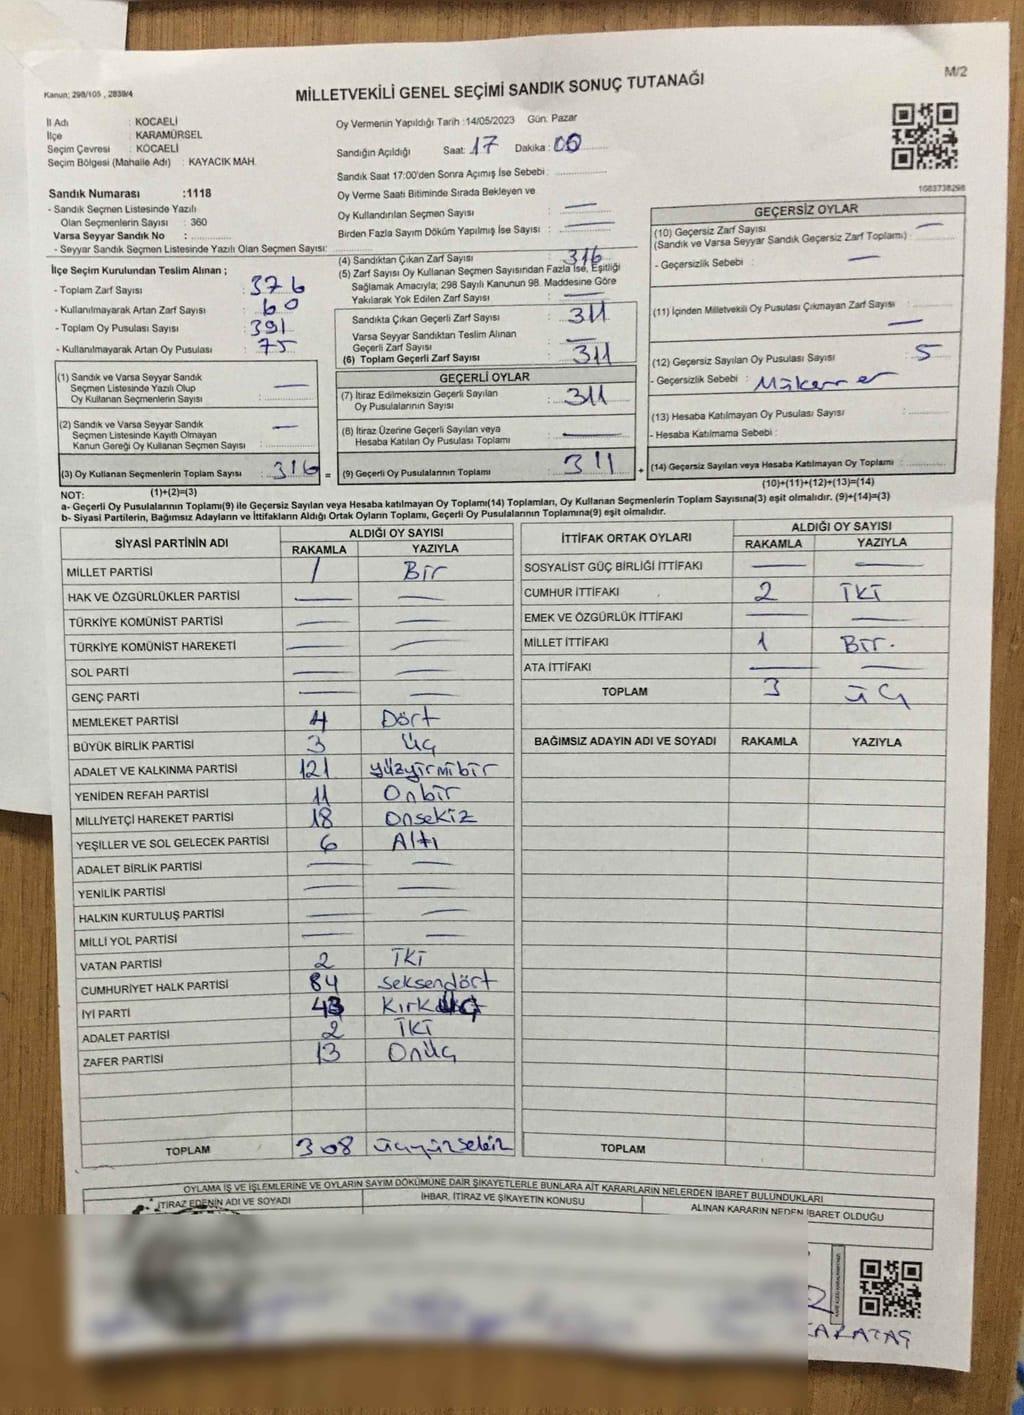 Kanun; 298/105 , 2839/4
M/2
MİLLETVEKİLİ GENEL SEÇİMİ SANDIK SONUÇ TUTANAĞI
İl Adı : KOCAELİ
İlçe : KARAMÜRSEL
Seçim Çevresi : KOCAELİ
Seçim Bölgesi (Mahalle Adı) : KAYACIK MAH.
Sandık Numarası :1118
- Sandık Seçmen Listesinde Yazılı
Olan Seçmenlerin Sayısı : 360
Varsa Seyyar Sandık No :
- Seyyar Sandık Seçmen Listesinde Yazılı Olan Seçmen Sayısı:
Oy Vermenin Yapıldığı Tarih :14/05/2023 Gün: Pazar
Sandığın Açıldığı Saat: 17 Dakika : 00
Sandık Saat 17:00'den Sonra Açımış İse Sebebi :
Oy Verme Saati Bitiminde Sırada Bekleyen ve
Oy Kullandırılan Seçmen Sayısı : —
Birden Fazla Sayım Döküm Yapılmış İse Sayısı : —
1083738298
İlçe Seçim Kurulundan Teslim Alınan ;
- Toplam Zarf Sayısı : 376
- Kullanılmayarak Artan Zarf Sayısı : 60
- Toplam Oy Pusulası Sayısı : 391
- Kullanılmayarak Artan Oy Pusulası : 75
(1) Sandık ve Varsa Seyyar Sandık
Seçmen Listesinde Yazılı Olup
Oy Kullanan Seçmenlerin Sayısı : —
(2) Sandık ve Varsa Seyyar Sandık
Seçmen Listesinde Kayıtlı Olmayan
Kanun Gereği Oy Kullanan Seçmen Sayısı : —
(3) Oy Kullanan Seçmenlerin Toplam Sayısı : 316 =
(1)+(2)=(3)
(4) Sandıktan Çıkan Zarf Sayısı : 316
(5) Zarf Sayısı Oy Kullanan Seçmen Sayısından Fazla İse, Eşitliği
Sağlamak Amacıyla; 298 Sayılı Kanunun 98. Maddesine Göre
Yakılarak Yok Edilen Zarf Sayısı : —
Sandıkta Çıkan Geçerli Zarf Sayısı : 311
Varsa Seyyar Sandıktan Teslim Alınan
Geçerli Zarf Sayısı : —
(6) Toplam Geçerli Zarf Sayısı : 311
GEÇERLİ OYLAR
(7) İtiraz Edilmeksizin Geçerli Sayılan
Oy Pusulalarının Sayısı : 311
(8) İtiraz Üzerine Geçerli Sayılan veya
Hesaba Katılan Oy Pusulası Toplamı : —
(9) Geçerli Oy Pusulalarının Toplamı : 311 +
GEÇERSİZ OYLAR
(10) Geçersiz Zarf Sayısı
(Sandık ve Varsa Seyyar Sandık Geçersiz Zarf Toplamı) : —
- Geçersizlik Sebebi : —
(11) İçinden Milletvekili Oy Pusulası Çıkmayan Zarf Sayısı : —
(12) Geçersiz Sayılan Oy Pusulası Sayısı : 5
- Geçersizlik Sebebi : Mükerrer
(13) Hesaba Katılmayan Oy Pusulası Sayısı :
- Hesaba Katılmama Sebebi :
(14) Geçersiz Sayılan veya Hesaba Katılmayan Oy Toplamı :
(10)+(11)+(12)+(13)=(14)
NOT:
a- Geçerli Oy Pusulalarının Toplamı(9) ile Geçersiz Sayılan veya Hesaba katılmayan Oy Toplamı(14) Toplamları, Oy Kullanan Seçmenlerin Toplam Sayısına(3) eşit olmalıdır. (9)+(14)=(3)
b- Siyasi Partilerin, Bağımsız Adayların ve İttifakların Aldığı Ortak Oyların Toplamı, Geçerli Oy Pusulalarının Toplamına(9) eşit olmalıdır.
SİYASİ PARTİNİN ADI ALDIĞI OY SAYISI
RAKAMLA YAZIYLA
MİLLET PARTİSİ 1 Bir
HAK VE ÖZGÜRLÜKLER PARTİSİ — —
TÜRKİYE KOMÜNİST PARTİSİ — —
TÜRKİYE KOMÜNİST HAREKETİ — —
SOL PARTİ — —
GENÇ PARTİ — —
MEMLEKET PARTİSİ 4 Dört
BÜYÜK BİRLİK PARTİSİ 3 Üç
ADALET VE KALKINMA PARTİSİ 121 yüzyirmibir
YENİDEN REFAH PARTİSİ 11 Onbir
MİLLİYETÇİ HAREKET PARTİSİ 18 Onsekiz
YEŞİLLER VE SOL GELECEK PARTİSİ 6 Altı
ADALET BİRLİK PARTİSİ — —
YENİLİK PARTİSİ — —
HALKIN KURTULUŞ PARTİSİ — —
MİLLİ YOL PARTİSİ — —
VATAN PARTİSİ 2 İki
CUMHURİYET HALK PARTİSİ 84 seksendört
İYİ PARTİ 43 Kırküç
ADALET PARTİSİ 2 İki
ZAFER PARTİSİ 13 Onüç
TOPLAM 308 üçyüzsekiz
İTTİFAK ORTAK OYLARI ALDIĞI OY SAYISI
RAKAMLA YAZIYLA
SOSYALİST GÜÇ BİRLİĞİ İTTİFAKI — —
CUMHUR İTTİFAKI 2 İki
EMEK VE ÖZGÜRLÜK İTTİFAKI — —
MİLLET İTTİFAKI 1 Bir.
ATA İTTİFAKI — —
TOPLAM 3 üç
BAĞIMSIZ ADAYIN ADI VE SOYADI RAKAMLA YAZIYLA
TOPLAM
OYLAMA İŞ VE İŞLEMLERİNE VE OYLARIN SAYIM DÖKÜMÜNE DAİR ŞİKAYETLERLE BUNLARA AİT KARARLARIN NELERDEN İBARET BULUNDUKLARI
İTİRAZ EDENİN ADI VE SOYADI İHBAR, İTİRAZ VE ŞİKAYETİN KONUSU ALINAN KARARIN NEDEN İBARET OLDUĞU
KARATAŞ